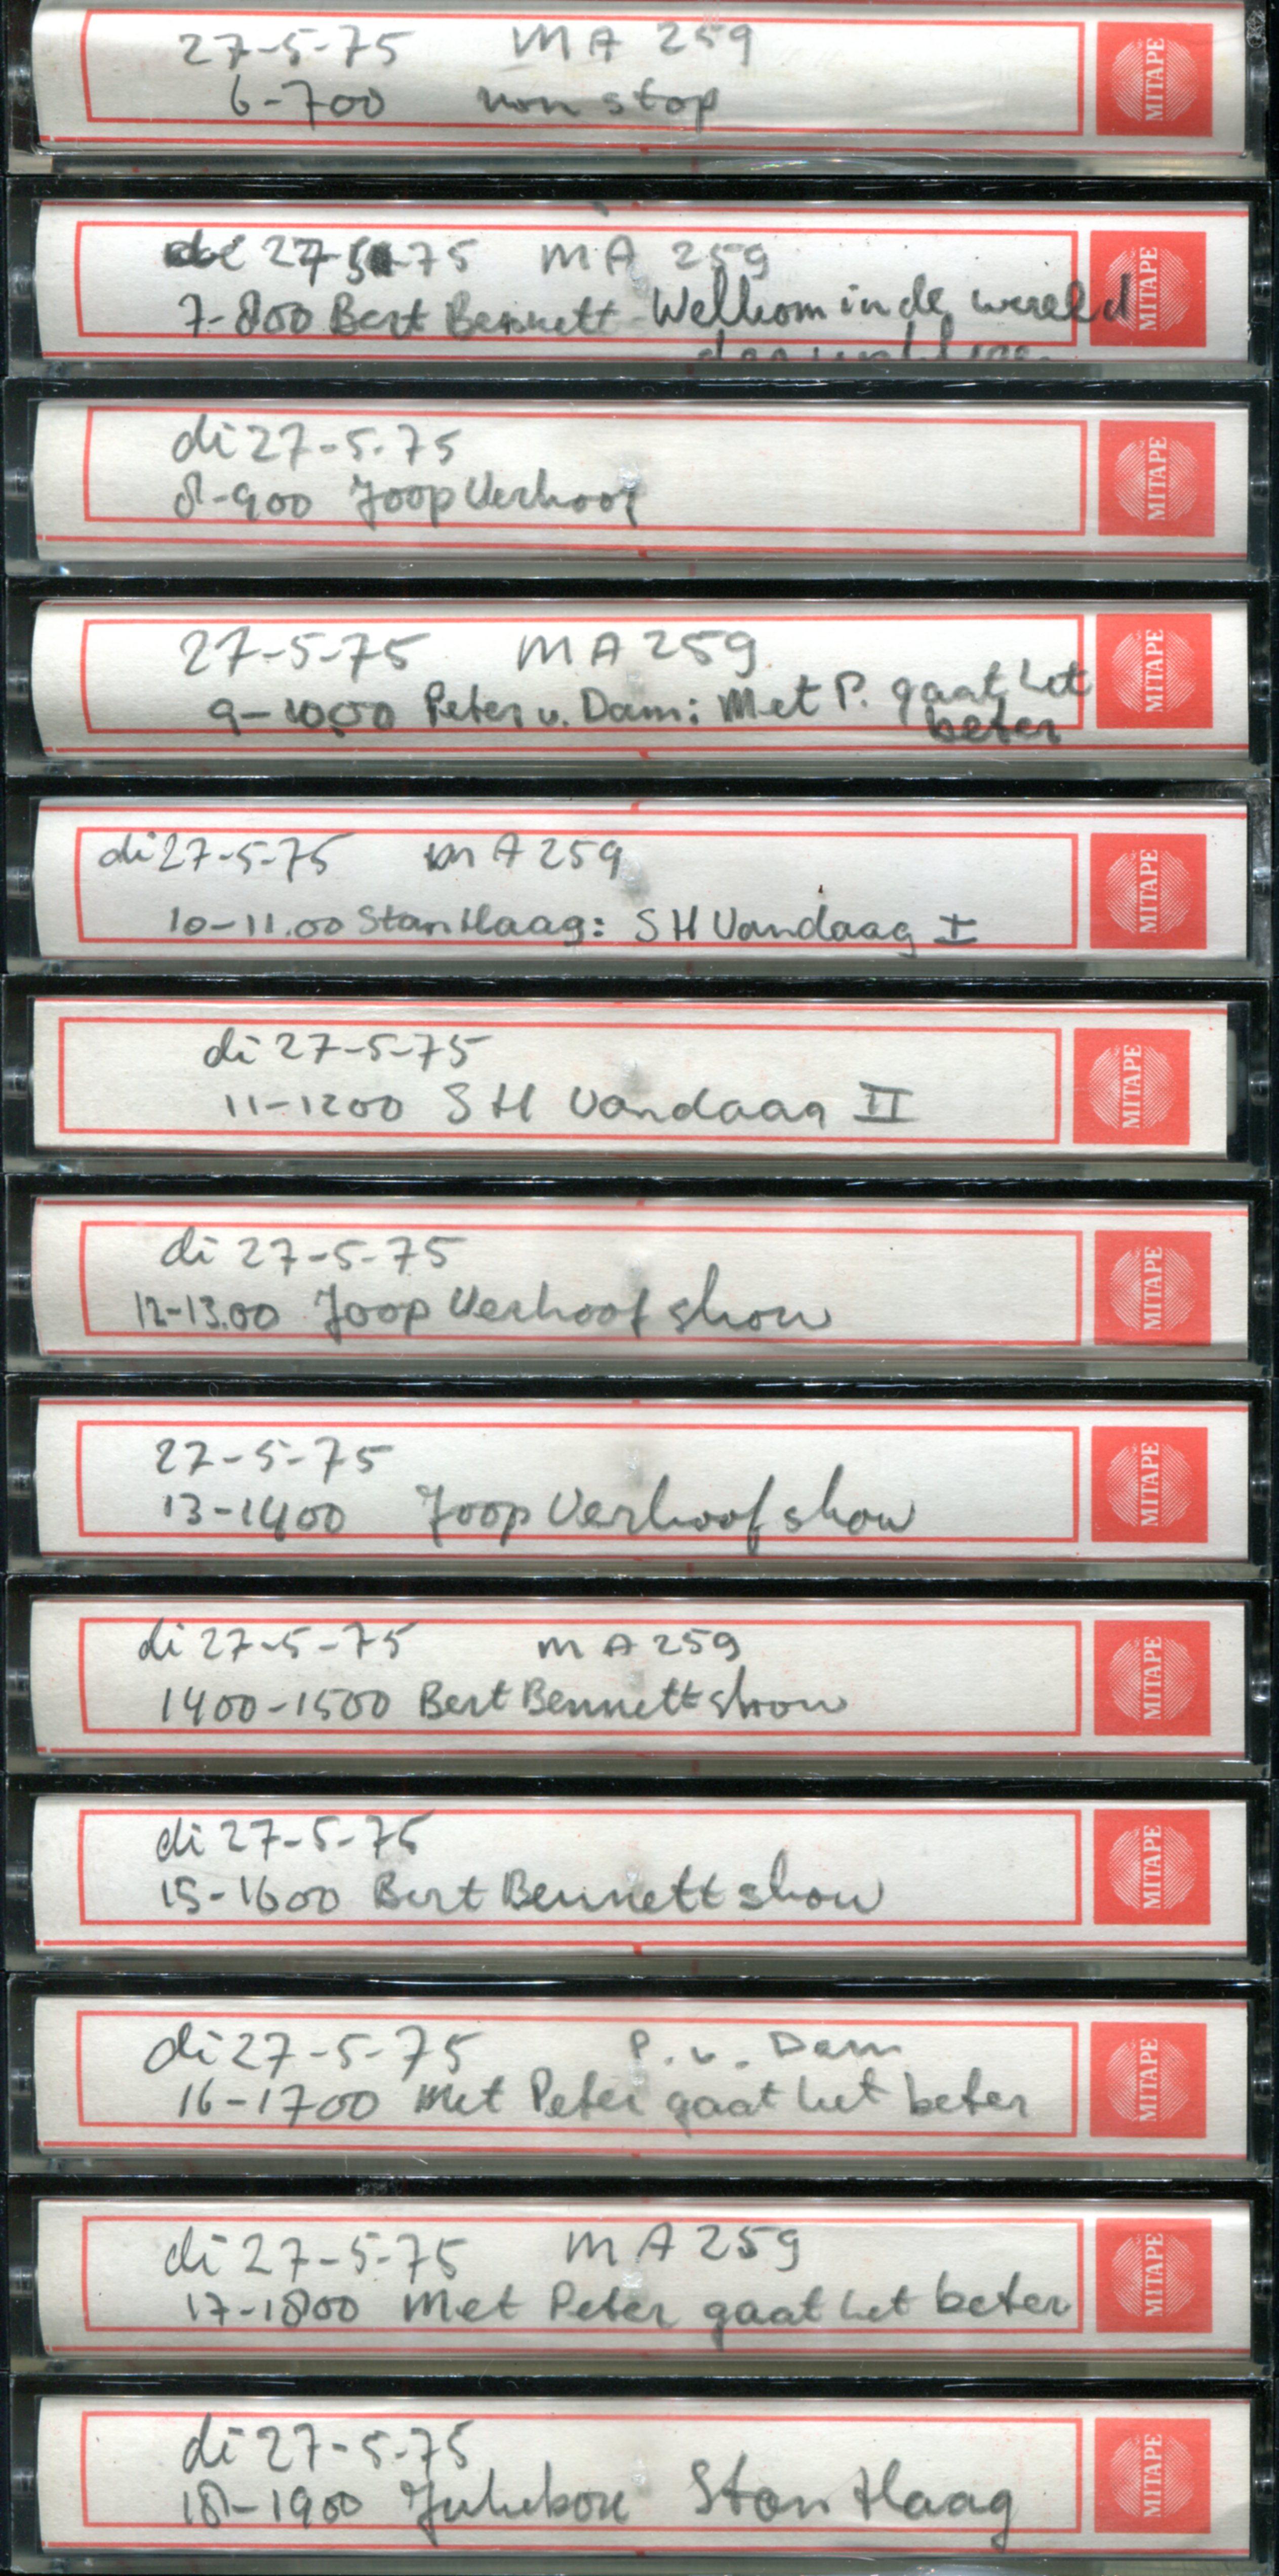 27-5-75 MA 259
6-700 non stop
MITAPE
27-5-75 MA 259
7-800 Bert Bennett - Welkom in de wereld
MITAPE
di 27-5-75
8-900 Joop Verhoof
MITAPE
27-5-75 MA 259
9-10.00 Peter v. Dam: Met P. gaat het
beter
MITAPE
di 27-5-75 MA 259
10-11.00 Stan Haag: SH Vandaag I
MITAPE
di 27-5-75
11-1200 SH Vandaag II
MITAPE
di 27-5-75
12-13.00 Joop Verhoof show
MITAPE
27-5-75
13-1400 Joop Verhoof show
MITAPE
di 27-5-75 MA 259
1400-1500 Bert Bennett show
MITAPE
di 27-5-75
15-1600 Bert Bennett show
MITAPE
di 27-5-75 P. v. Dam
16-1700 Met Peter gaat het beter
MITAPE
di 27-5-75 MA 259
17-1800 Met Peter gaat het beter
MITAPE
di 27-5-75
18-1900 Jukebox Stan Haag
MITAPE